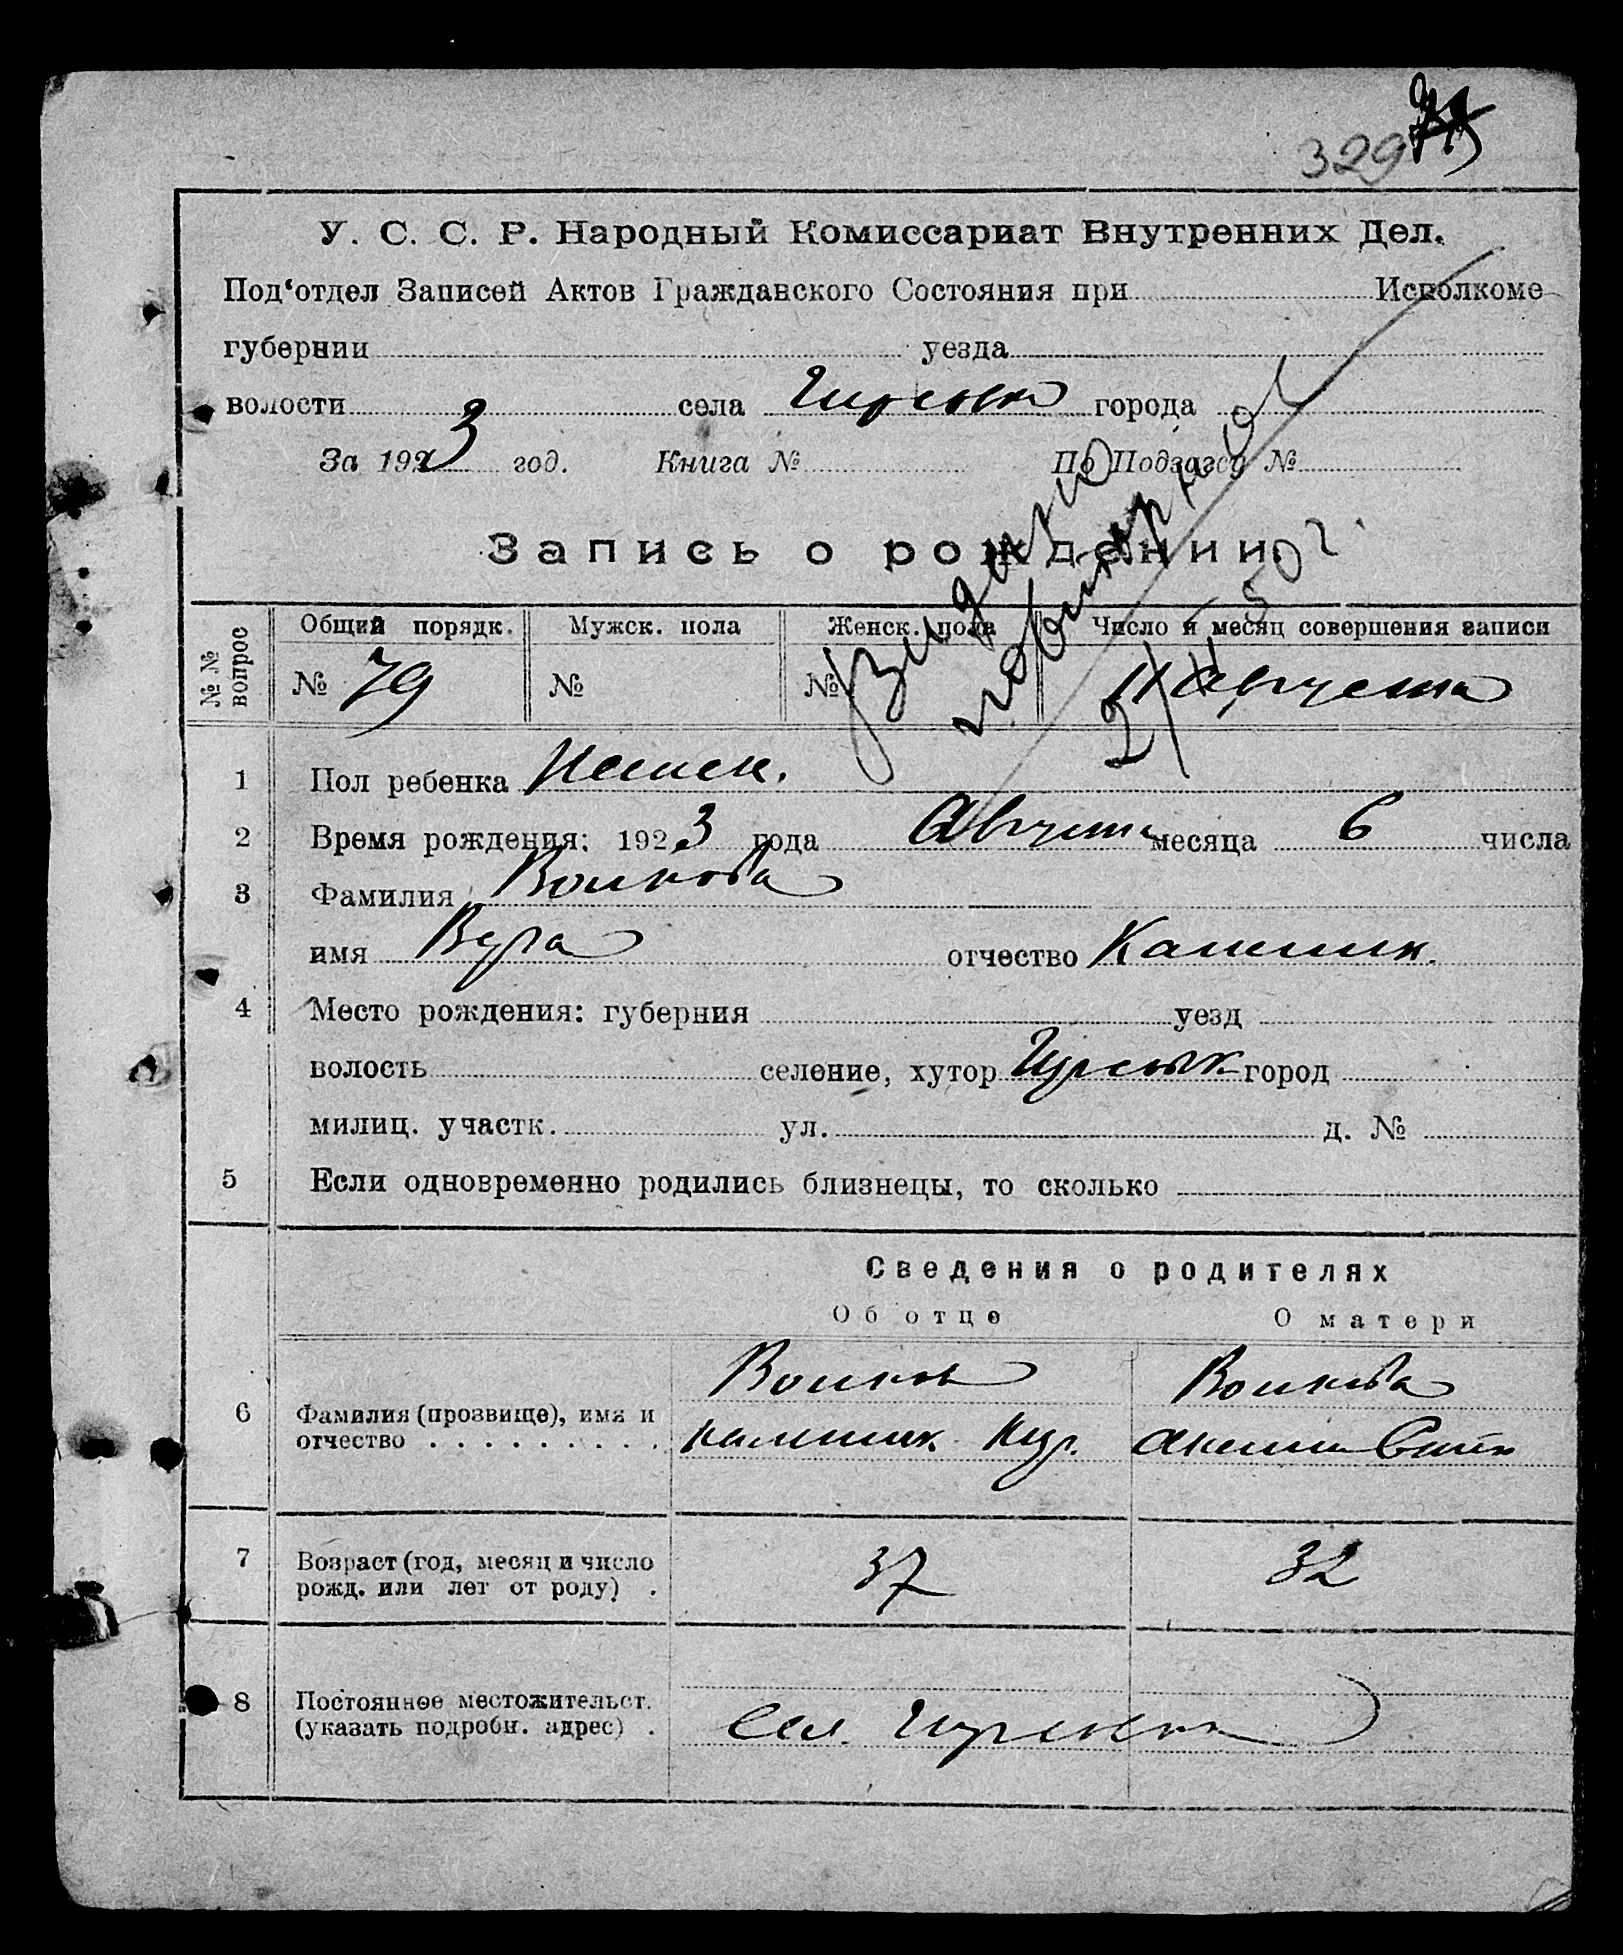 329
У. С. С. Р. Народный Комиссариат Внутренних Дел.
Под‘отдел Записей Актов Гражданского Состояния при Исполкоме
губернии уезда
волости села города
За 1923 год. Книга № По Подзагсу №
Запись о рождении
Видано повторное
2/X 50 г.
№№ вопрос Общий порядк. Мужск. пола Женск. пола Число и месяц совершения записи
№ 79 № № 11 Августа
1 Пол ребенка Женск.
2 Время рождения: 1923 года Августа месяца 6 числа
3 Фамилия Воинова
имя Вера отчество
4 Место рождения: губерния уезд
волость селение, хутор город
милиц. участк. ул. д. №
5 Если одновременно родились близнецы, то сколько
Сведения о родителях
Об отце О матери
Воинов Воинова
6 Фамилия (прозвище), имя и
отчество
7 Возраст (год, месяц и число 37 32
рожд. или лет от роду)
8 Постоянное местожительст.
(указать подробн. адрес) Сел.